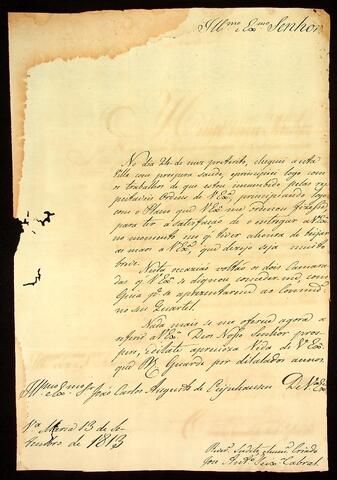 Ill.mo e Ex.mo Senhor
No dia 24 do mez preterito, cheguei a esta
Villa com prospera saude, e principiei logo com
os trabalhos de que estou incumbido pelas res
peitaveis Ordens de V.Ex.a, principiando
com o Plano que V.Ex.a me ordenou
para ter a satisfação de o entregar a V.Ex.a
no momento em q' tiver a honra de beijar
as maos a V.Ex.a, que dezejo seja muito
breve.
Nesta occazião voltão os dois Camara
das q' V.Ex.a se dignou conceder me, com
Guia p.a se aprezentarem ao Comm.de
no seu Quartel.
Nada mais se me oferece agora a
referir a V.Ex.a Deos Nosso Senhor pros
pere, e dilate a precioza Vida de V.Ex.a
que D.s Guarde por dilatados annos
Ill.mo e Ex.mo Sr. João Carlos Augusto de Oeynhausen De V.Ex.a
V.a Maria 13 de Se
tembro de 1813
Subdito e Criado
Jozé Ant.o Cabral